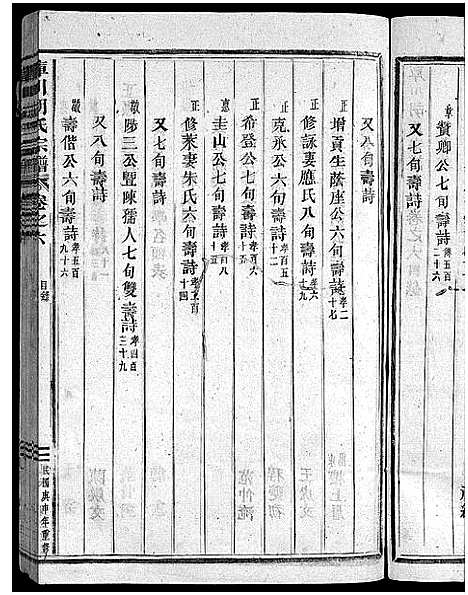 孝 贊卿公七旬壽詩 孝五百二十六
又七旬壽詩
又八旬壽詩
正 增貢生蔭座公六旬壽詩 孝二十七
正 修詠妻應氏八旬壽詩 孝六十九
正 克承公六旬壽詩 孝百五十二
正 希登公七旬壽詩
惠 圭山公七旬壽詩 孝百八十五
正 修萊妻朱氏六旬壽詩
又七旬壽詩
敬 陟三公暨陳孺人七旬雙壽詩 孝四百三十九
又八旬壽詩
敬 壽偕公六旬壽詩 孝五百九十六
川胡氏宗譜 卷之六 目錄 民國庚申年重修